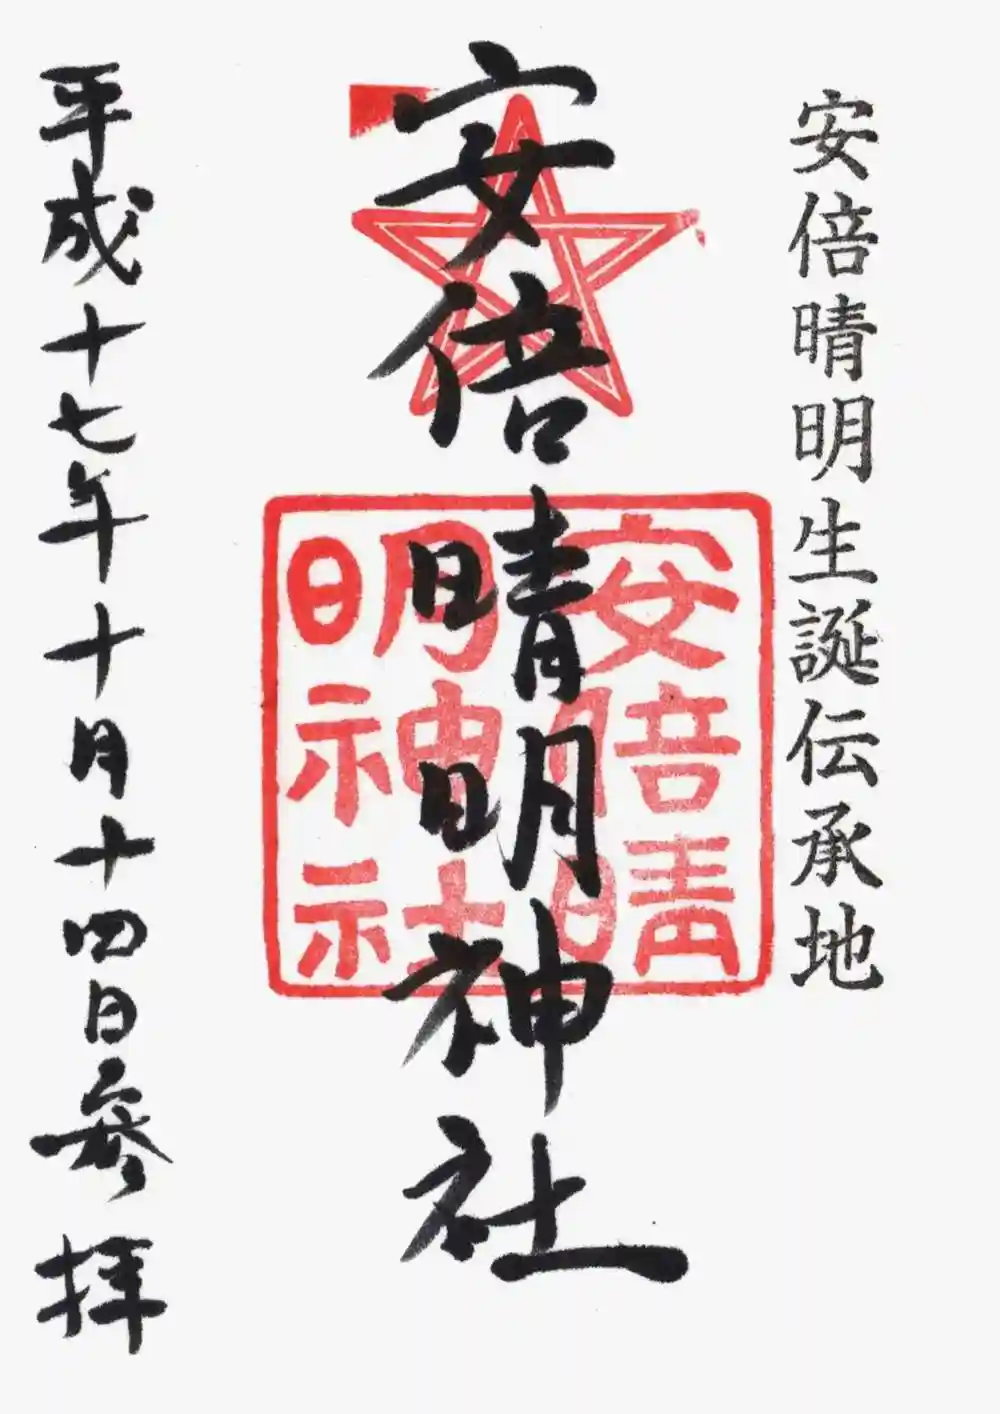 安倍晴明生誕伝承地
安倍晴明神社
安倍晴
明神社
平成十七年十月十四日参拝